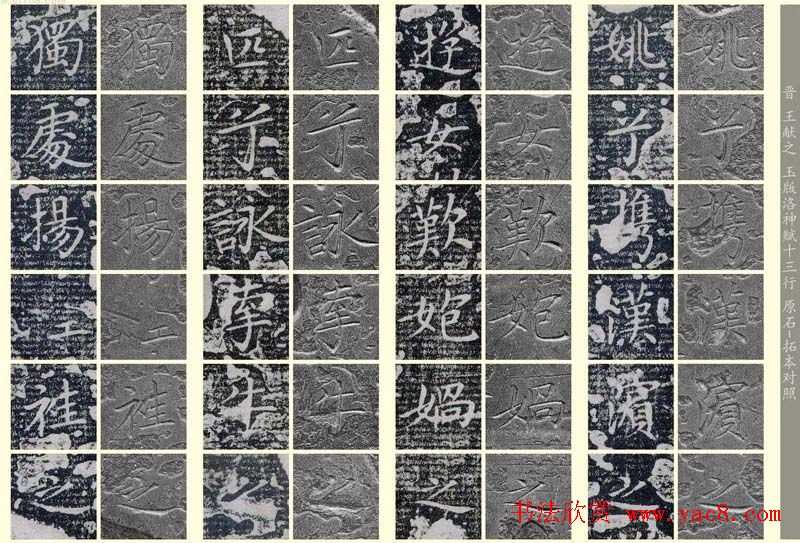 晋 王献之 玉版洛神赋十三行 原石-拓本对照
姚兮携漢濱之
姚兮携漢濱之
遊女歎匏媧之
遊女歎匏媧之
匹兮詠牽牛之
匹兮詠牽牛之
獨處揚袿之
獨處揚袿之
书法欣赏 www.yac8.com